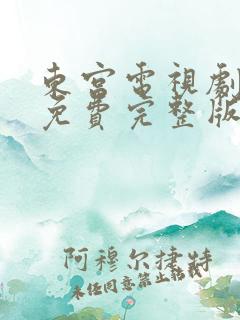 東宮電視劇
免費完整版
阿穆尔捷特
未经同意禁止转载